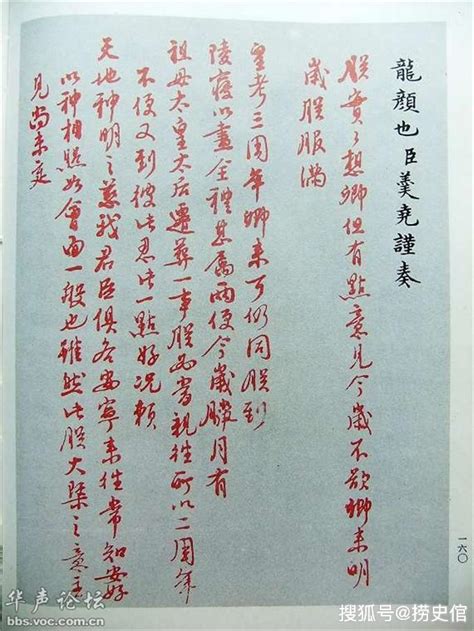 龍顏也臣羹堯謹奏
朕實々想卿但有點意見今歲不欲卿來明
歲朕服滿
皇考三周年卿來可仍同朕到
陵寢以盡全禮甚屬兩便今歲臘月有
祖母太皇太后遷葬一事朕必當親往所以二周年
不便又到彼此忍此一點好況賴
天地神明之慈我君臣俱各安寧來往常知安好
以神相照如會面一般也雖然此朕大槩之意主
見尚未定
一六〇
华声论坛
bbs.voc.com.cn
搜狐号@捞史信